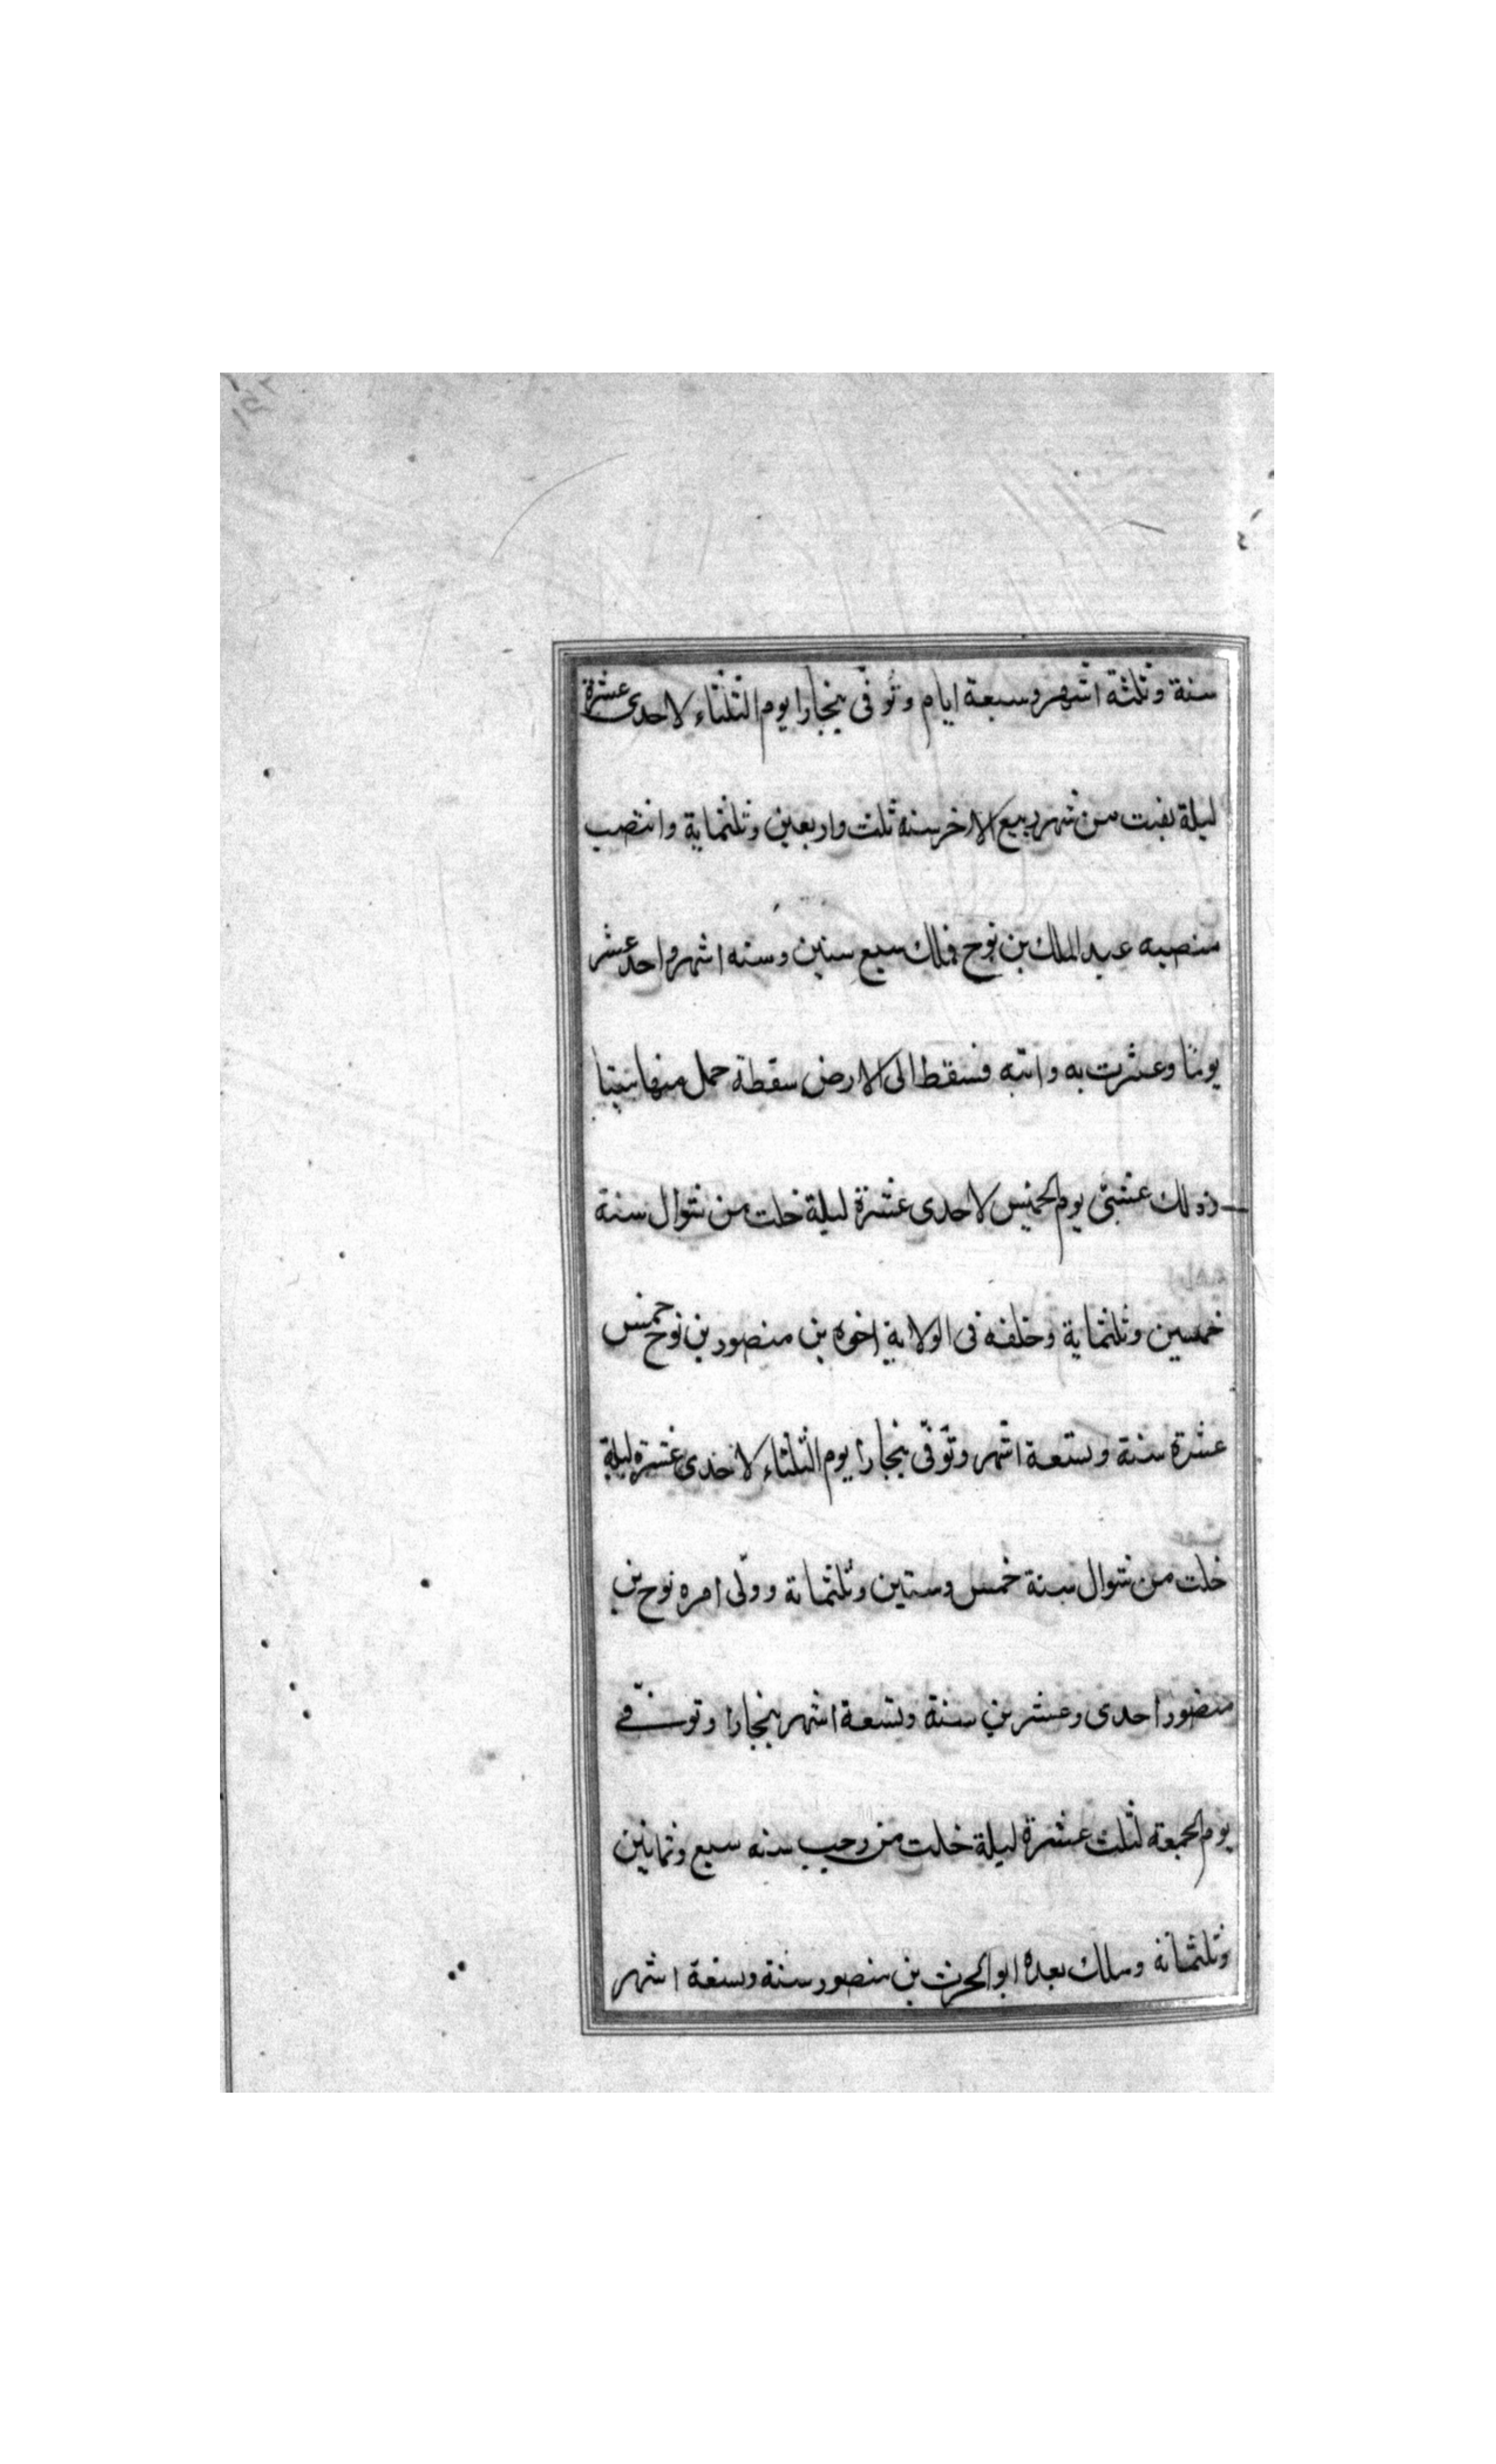 سنة وثلثة اشهر وسبعة ايام وتوفى ببخارا يوم الثلثاء لاحدى عشرة
ليلة بقيت من شهر ربيع الاخر سنه ثلث واربعين وثلثماية وانتصب
منصبه عبد الملك بن نوح فملك سبع سنين وسته اشهر واحد عشر
يوما وعثرت به دابته فسقط الى الارض سقطة حمل منها ميتا
وذلك عشى يوم الخميس لاحدى عشرة ليلة خلت من شوال سنة
خمسين وثلثماية وخلفه فى الولاية اخوه بن منصور بن نوح خمس
عشرة سنة وتسعة اشهر وتوفى ببخارا يوم الثلثاء لاحدى عشرة ليلة
خلت من شوال سنة خمس وستين وثلثمائة وولى امره نوح بن
منصور احدى وعشرين سنة وتسعة اشهر ببخارا وتوفى
يوم الجمعه لثلث عشرة ليلة خلت من رجب سنه سبع وثمانين
وثلثمائه وملك بعده ابو الحرث بن منصور سنة وتسعة اشهر